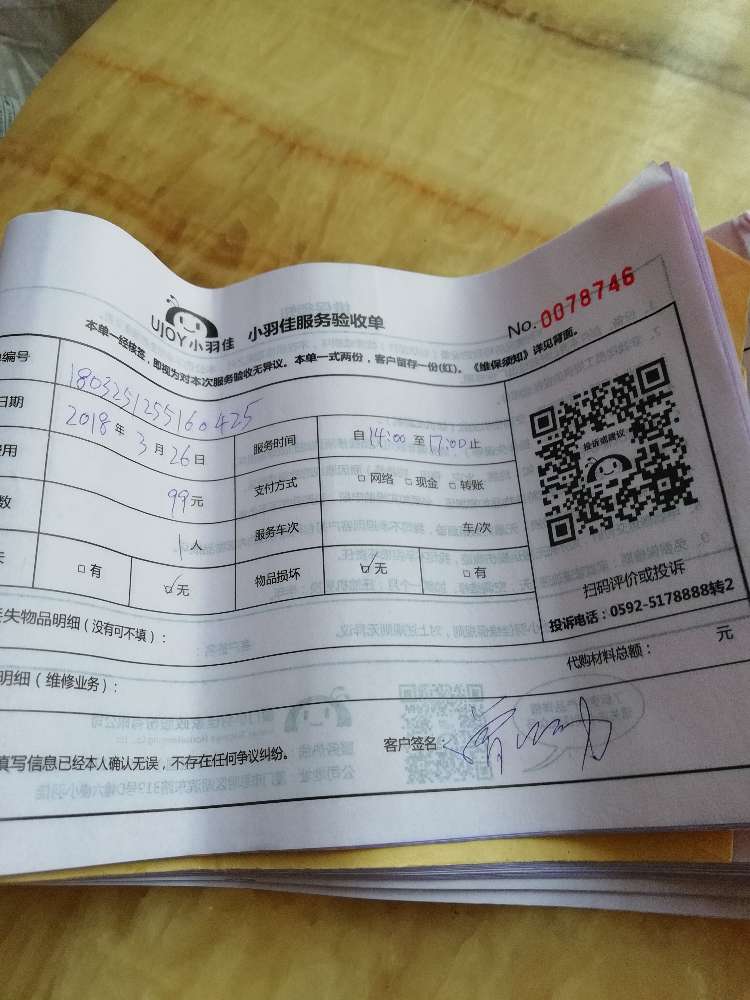 UJOY 小羽佳 小羽佳服务验收单
No.0078746
本单一经核签，即视为对本次服务验收无异议。本单一式两份，客户留存一份(红)。《维保须知》详见背面。
编号 1803251255160425
日期 2018年3月26日 服务时间 自14:00至17:00止
用 99元 支付方式 □网络 □现金 □转账
数 1人 服务车次 车/次
□有 ☑无 物品损坏 ☑无 □有
投诉或建议
扫码评价或投诉
投诉电话：0592-5178888转2
失物品明细（没有可不填）：
明细（维修业务）： 代购材料总额： 元
填写信息已经本人确认无误，不存在任何争议纠纷。 客户签名：